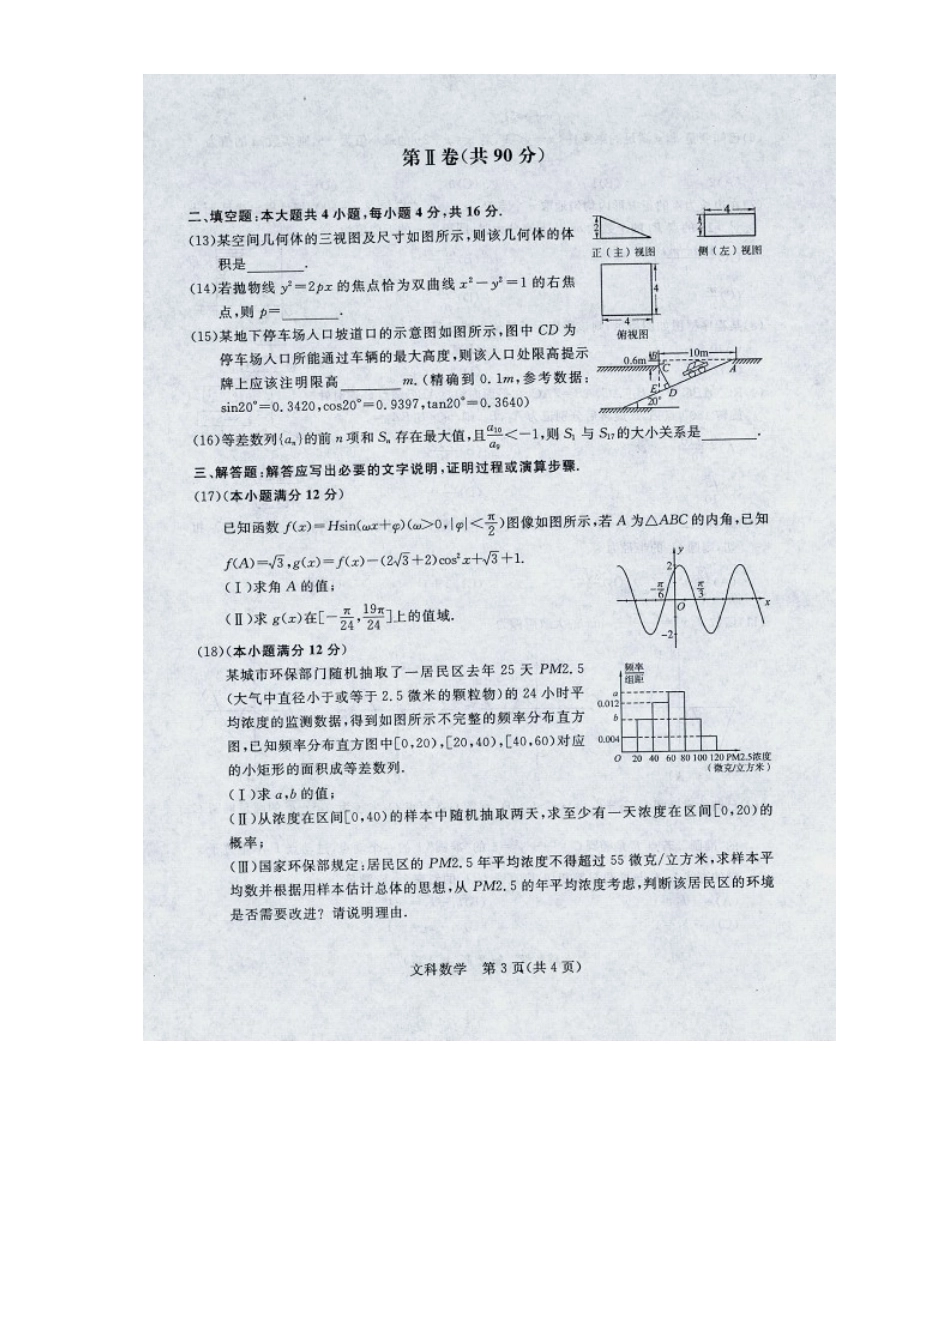 第Ⅱ卷(共 90 分)
二、填空题:本大题共 4 小题,每小题 4 分,共 16 分.
(13)某空间几何体的三视图及尺寸如图所示,则该几何体的体
积是________.
2
正(主)视图
4
2
侧(左)视图
4
4
俯视图
(14)若抛物线 y²=2px 的焦点恰为双曲线 x²-y²=1 的右焦
点,则 p=________.
(15)某地下停车场入口坡道口的示意图如图所示,图中 CD 为
停车场入口所能通过车辆的最大高度,则该入口处限高提示
牌上应该注明限高________m.(精确到 0.1m,参考数据:
sin20°=0.3420,cos20°=0.9397,tan20°=0.3640)
0.6m
10m
C
A
E
D
20°
(16)等差数列{aₙ}的前 n 项和 Sₙ 存在最大值,且a₁₀/a₉<-1,则 S₁ 与 S₁₇的大小关系是________.
三、解答题:解答应写出必要的文字说明,证明过程或演算步骤.
(17)(本小题满分 12 分)
已知函数 f(x)=Hsin(ωx+φ)(ω>0,|φ|<π/2)图像如图所示,若 A 为△ABC 的内角,已知
f(A)=√3,g(x)=f(x)-(2√3+2)cos²x+√3+1.
(Ⅰ)求角 A 的值;
(Ⅱ)求 g(x)在[-π/24,19π/24]上的值域.
y
2
-π/6
π/3
O
x
-2
(18)(本小题满分 12 分)
某城市环保部门随机抽取了一居民区去年 25 天 PM2.5
(大气中直径小于或等于 2.5 微米的颗粒物)的 24 小时平
均浓度的监测数据,得到如图所示不完整的频率分布直方
图,已知频率分布直方图中[0,20),[20,40),[40,60)对应
的小矩形的面积成等差数列.
频率
组距
a
0.012
b
0.004
O 20 40 60 80 100 120 PM2.5浓度
(微克/立方米)
(Ⅰ)求 a,b 的值;
(Ⅱ)从浓度在区间[0,40)的样本中随机抽取两天,求至少有一天浓度在区间[0,20)的
概率;
(Ⅲ)国家环保部规定:居民区的 PM2.5 年平均浓度不得超过 55 微克/立方米,求样本平
均数并根据用样本估计总体的思想,从 PM2.5 的年平均浓度考虑,判断该居民区的环境
是否需要改进?请说明理由.
文科数学 第 3 页(共 4 页)